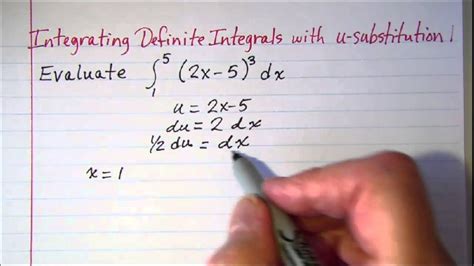 Integrating Definite Integrals with u-substitution!
Evaluate ∫₁⁵ (2x-5)³ dx
u = 2x-5
du = 2 dx
½ du = dx
x = 1